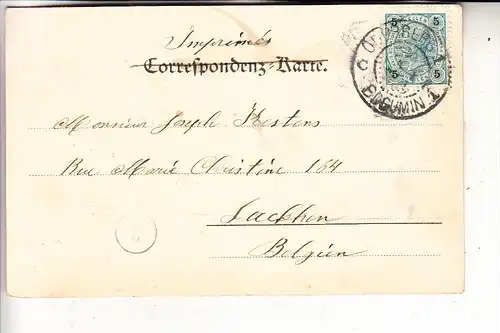 Imprimés
Correspondenz-Karte.
5 5
5 5
ODERBERG
BOGUMIN 1
Monsieur Joseph Kestens
Rue Marie Christine 184
Laeken
Belgien